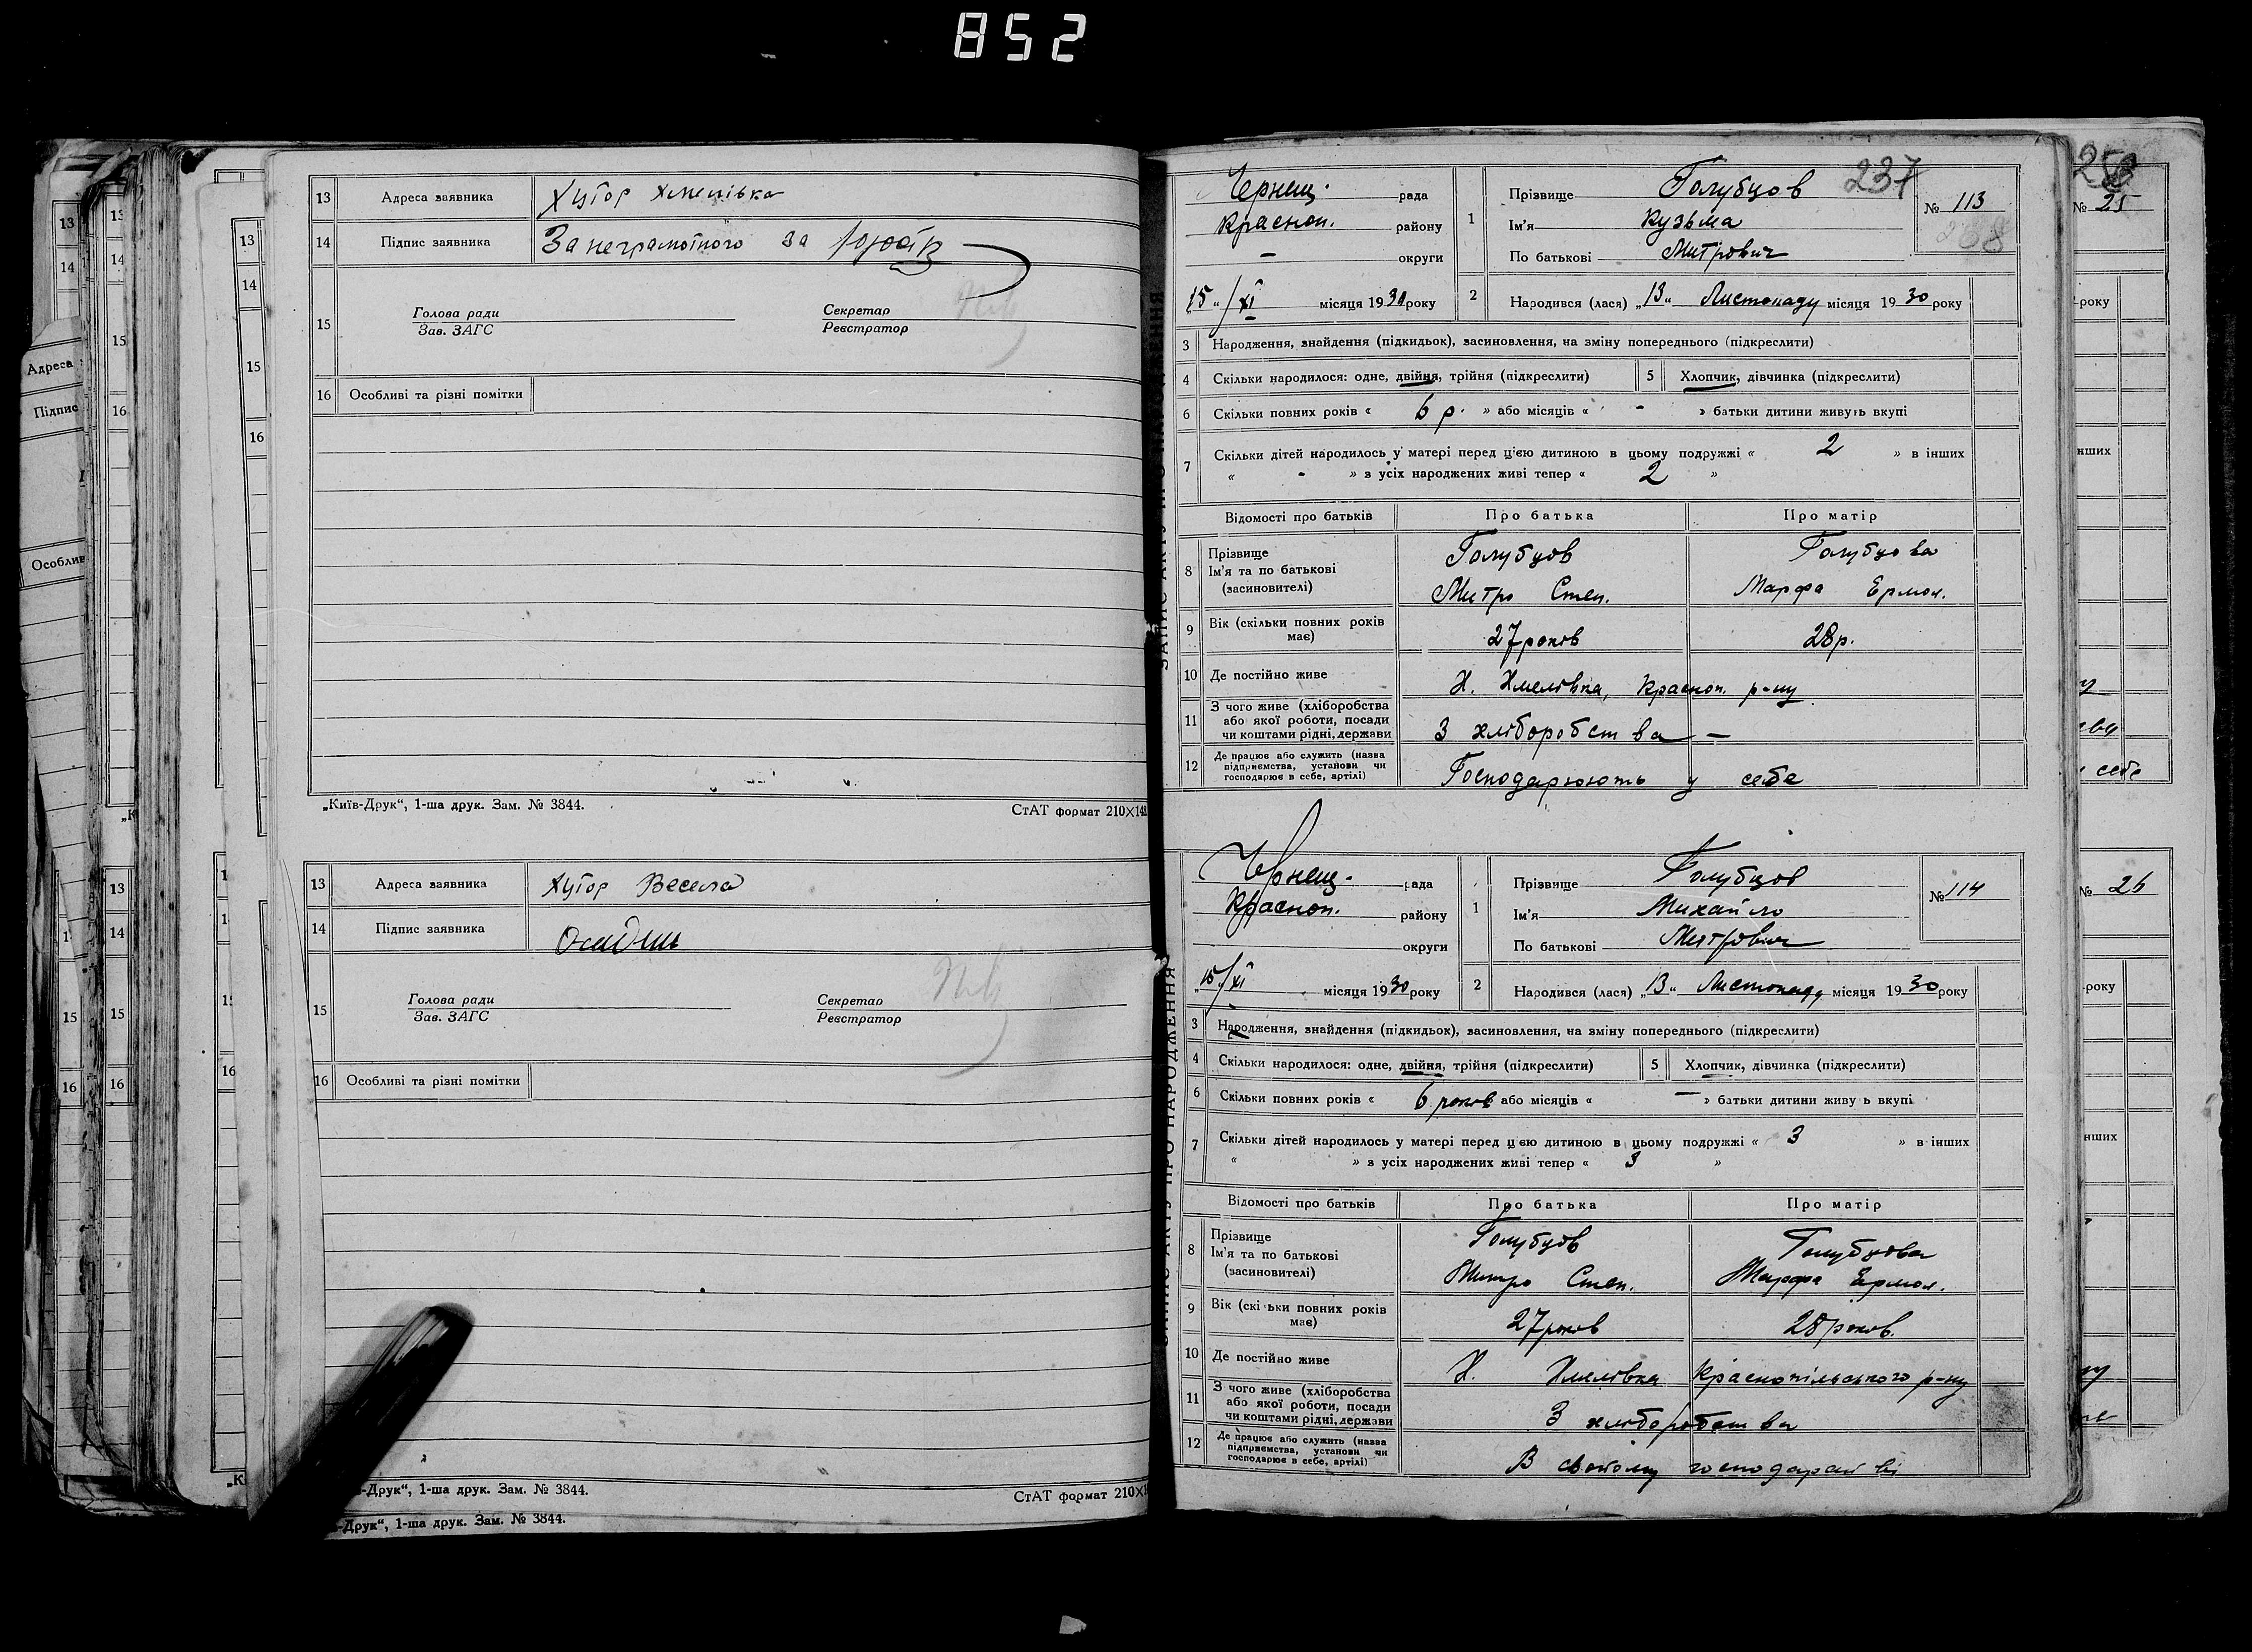 852
13 Адреса заявника Хутор Хмелівка
14 Підпис заявника За неграмотного за
15 Голова ради Секретар
Зав. ЗАГС Реєстратор
16 Особливі та різні помітки
„Київ-Друк“, 1-ша друк. Зам. № 3844. СтАТ формат 210×148
13 Адреса заявника Хутор Весела
14 Підпис заявника
15 Голова ради Секретар
Зав. ЗАГС Реєстратор
16 Особливі та різні помітки
-Друк“, 1-ша друк. Зам. № 3844. СтАТ формат 210×1
-Друк“, 1-ша друк. Зам. № 3844.
237
Чернещ. рада
Красноп. району
– округи
15 „/XI місяця 1930 року
1 Прізвище Голубцов
Ім'я Кузьма
По батькові Митрович
№ 113
238
2 Народився (лася) „13“ Листопаду місяця 1930 року
3 Народження, знайдення (підкидьок), засиновлення, на зміну попереднього (підкреслити)
4 Скільки народилося: одне, двійня, трійня (підкреслити) 5 Хлопчик, дівчинка (підкреслити)
6 Скільки повних років « 6 р. » або місяців « - » батьки дитини живуть вкупі
7 Скільки дітей народилось у матері перед цією дитиною в цьому подружжі « 2 » в інших
« - » з усіх народжених живі тепер « 2 »
Відомості про батьків Про батька Про матір
8 Прізвище Голубцов Голубцова
Ім'я та по батькові
(засиновителі) Митро Степ. Марфа Ермол.
9 Вік (скільки повних років має) 27 років 28 р.
10 Де постійно живе Х. Хмелівка, Красноп. р-ну
11 З чого живе (хліборобства
або якої роботи, посади
чи коштами рідні, держави З хліборобства –
12 Де працює або служить (назва
підприємства, установи чи
господарює в себе, артілі) Господарюють у себе
Чернещ. рада
Красноп. району
округи
„15/XI місяця 1930 року
1 Прізвище Голубцов
Ім'я Михайло
По батькові Митрович
№ 114
2 Народився (лася) „13“ Листопаду місяця 1930 року
3 Народження, знайдення (підкидьок), засиновлення, на зміну попереднього (підкреслити)
4 Скільки народилося: одне, двійня, трійня (підкреслити) 5 Хлопчик, дівчинка (підкреслити)
6 Скільки повних років « 6 років або місяців « — » батьки дитини живу ь вкупі
7 Скільки дітей народилось у матері перед цією дитиною в цьому подружжі « 3 » в інших
« » з усіх народжених живі тепер « 3 »
Відомості про батьків Про батька Про матір
8 Прізвище Голубцов Голубцова
Ім'я та по батькові
(засиновителі) Митро Степ. Марфа Ермол.
9 Вік (скі ьки повних років має) 27 років 28 років.
10 Де постійно живе Х. Хмелівка Краснопільського р-ну
11 З чого живе (хліборобства
або якої роботи, посади
чи коштами рідні, держави З хліборобства
12 Де працює або служить (назва
підприємства, установи чи
господарює в себе, артілі) В своїому господарстві
№ 25
року
нших
себе
№ 26
року
нших